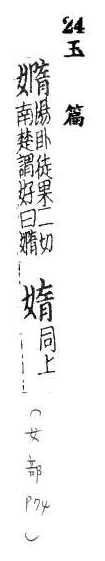 24 玉篇
嫷 湯卧徒果二切
南楚謂好曰嫷
媠 同上
(女部 P74)